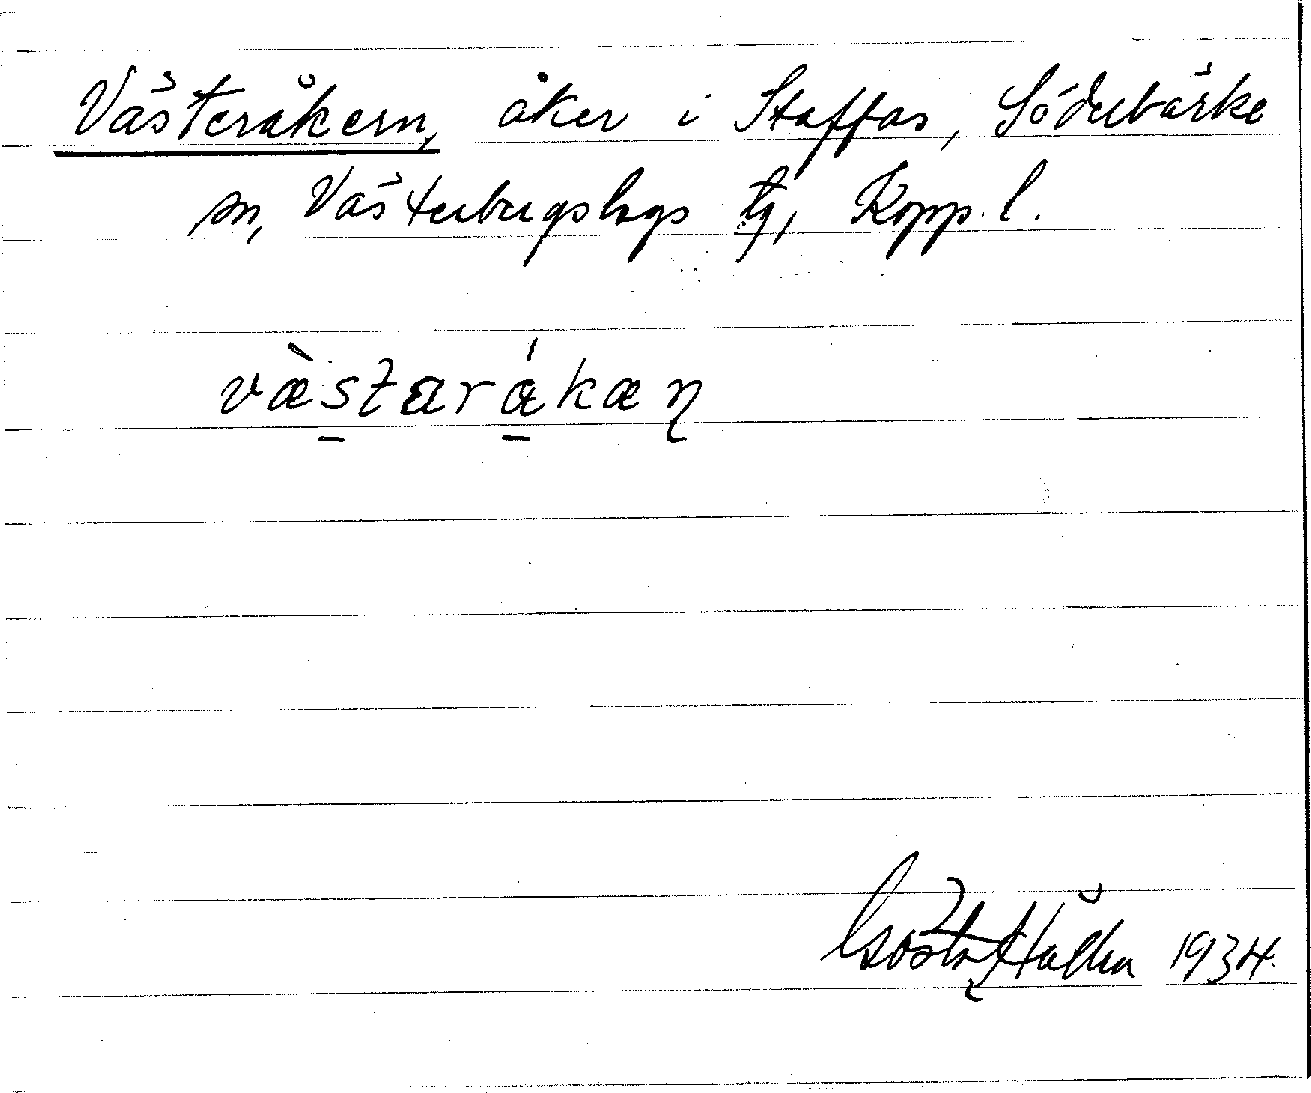 Västeråkern, åker i Staffas, Söderbärke
sn, Västerbergslags tg, Kopp. l.
væ̀starákæn
Gösta 1934.